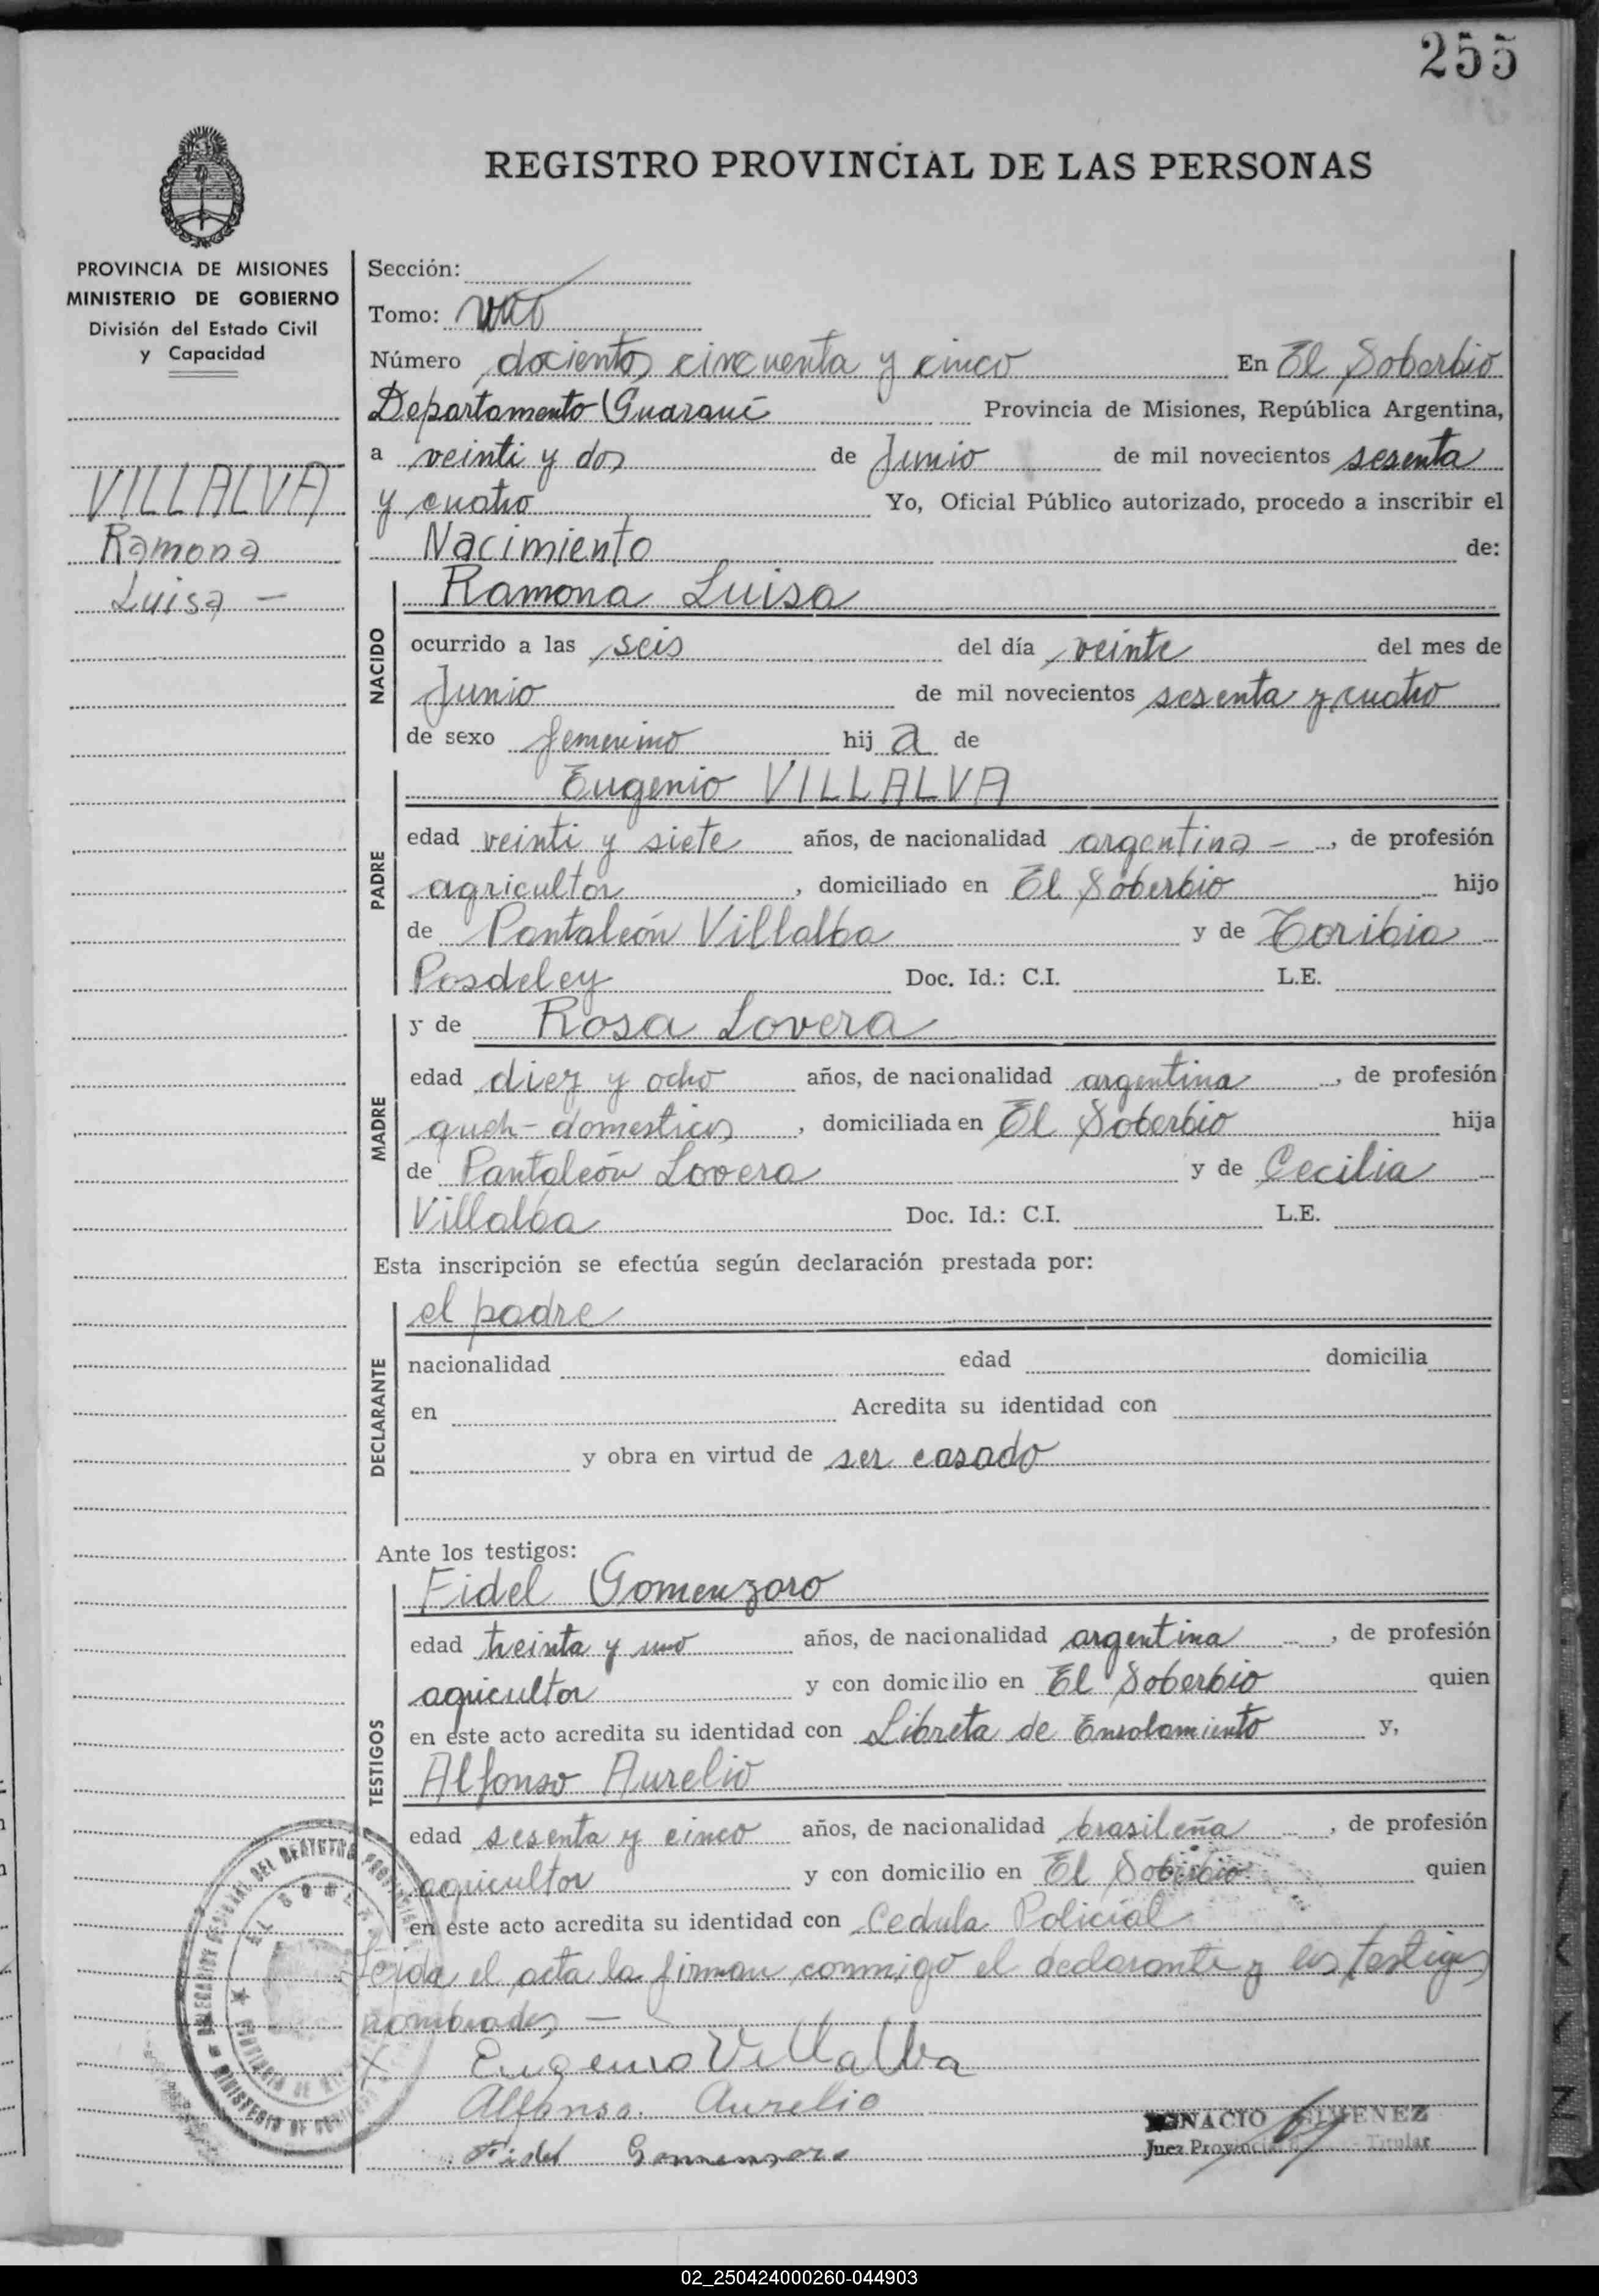 255
REGISTRO PROVINCIAL DE LAS PERSONAS
PROVINCIA DE MISIONES
MINISTERIO DE GOBIERNO
División del Estado Civil
y Capacidad
VILLALVA
Ramona
Luisa -
Sección:
Tomo: uno
Número docientos cincuenta y cinco En El Soberbio
Departamento Guaraní Provincia de Misiones, República Argentina,
a veinti y dos de Junio de mil novecientos sesenta
y cuatro Yo, Oficial Público autorizado, procedo a inscribir el
Nacimiento de:
NACIDO
Ramona Luisa
ocurrido a las seis del día veinte del mes de
Junio de mil novecientos sesenta y cuatro
de sexo femenino hij a de
PADRE
Eugenio VILLALVA
edad veinti y siete años, de nacionalidad argentina -, de profesión
agricultor, domiciliado en El Soberbio hijo
de Pantaleón Villalba y de Toribia
Posdeley Doc. Id.: C.I. L.E.
MADRE
y de Rosa Lovera
edad diez y ocho años, de nacionalidad argentina, de profesión
queh-domesticos, domiciliada en El Soberbio hija
de Pantaleón Lovera y de Cecilia
Villalba Doc. Id.: C.I. L.E.
Esta inscripción se efectúa según declaración prestada por:
DECLARANTE
el padre
nacionalidad edad domicilia
en Acredita su identidad con
y obra en virtud de ser casado
Ante los testigos:
TESTIGOS
Fidel Gomenzoro
edad treinta y uno años, de nacionalidad argentina, de profesión
agricultor y con domicilio en El Soberbio quien
en este acto acredita su identidad con Libreta de Enrolamiento y,
Alfonso Aurelio
edad sesenta y cinco años, de nacionalidad brasileña, de profesión
agricultor y con domicilio en El Soberbio quien
en este acto acredita su identidad con Cedula Policial
Leida el acta la firman conmigo el declarante y los testigos
nombrados -
Eugenio Villalba
Alfonso. Aurelio
Fidel Gomenzoro
IGNACIO GIMENEZ
Juez Provincial Titular
02_250424000260-044903